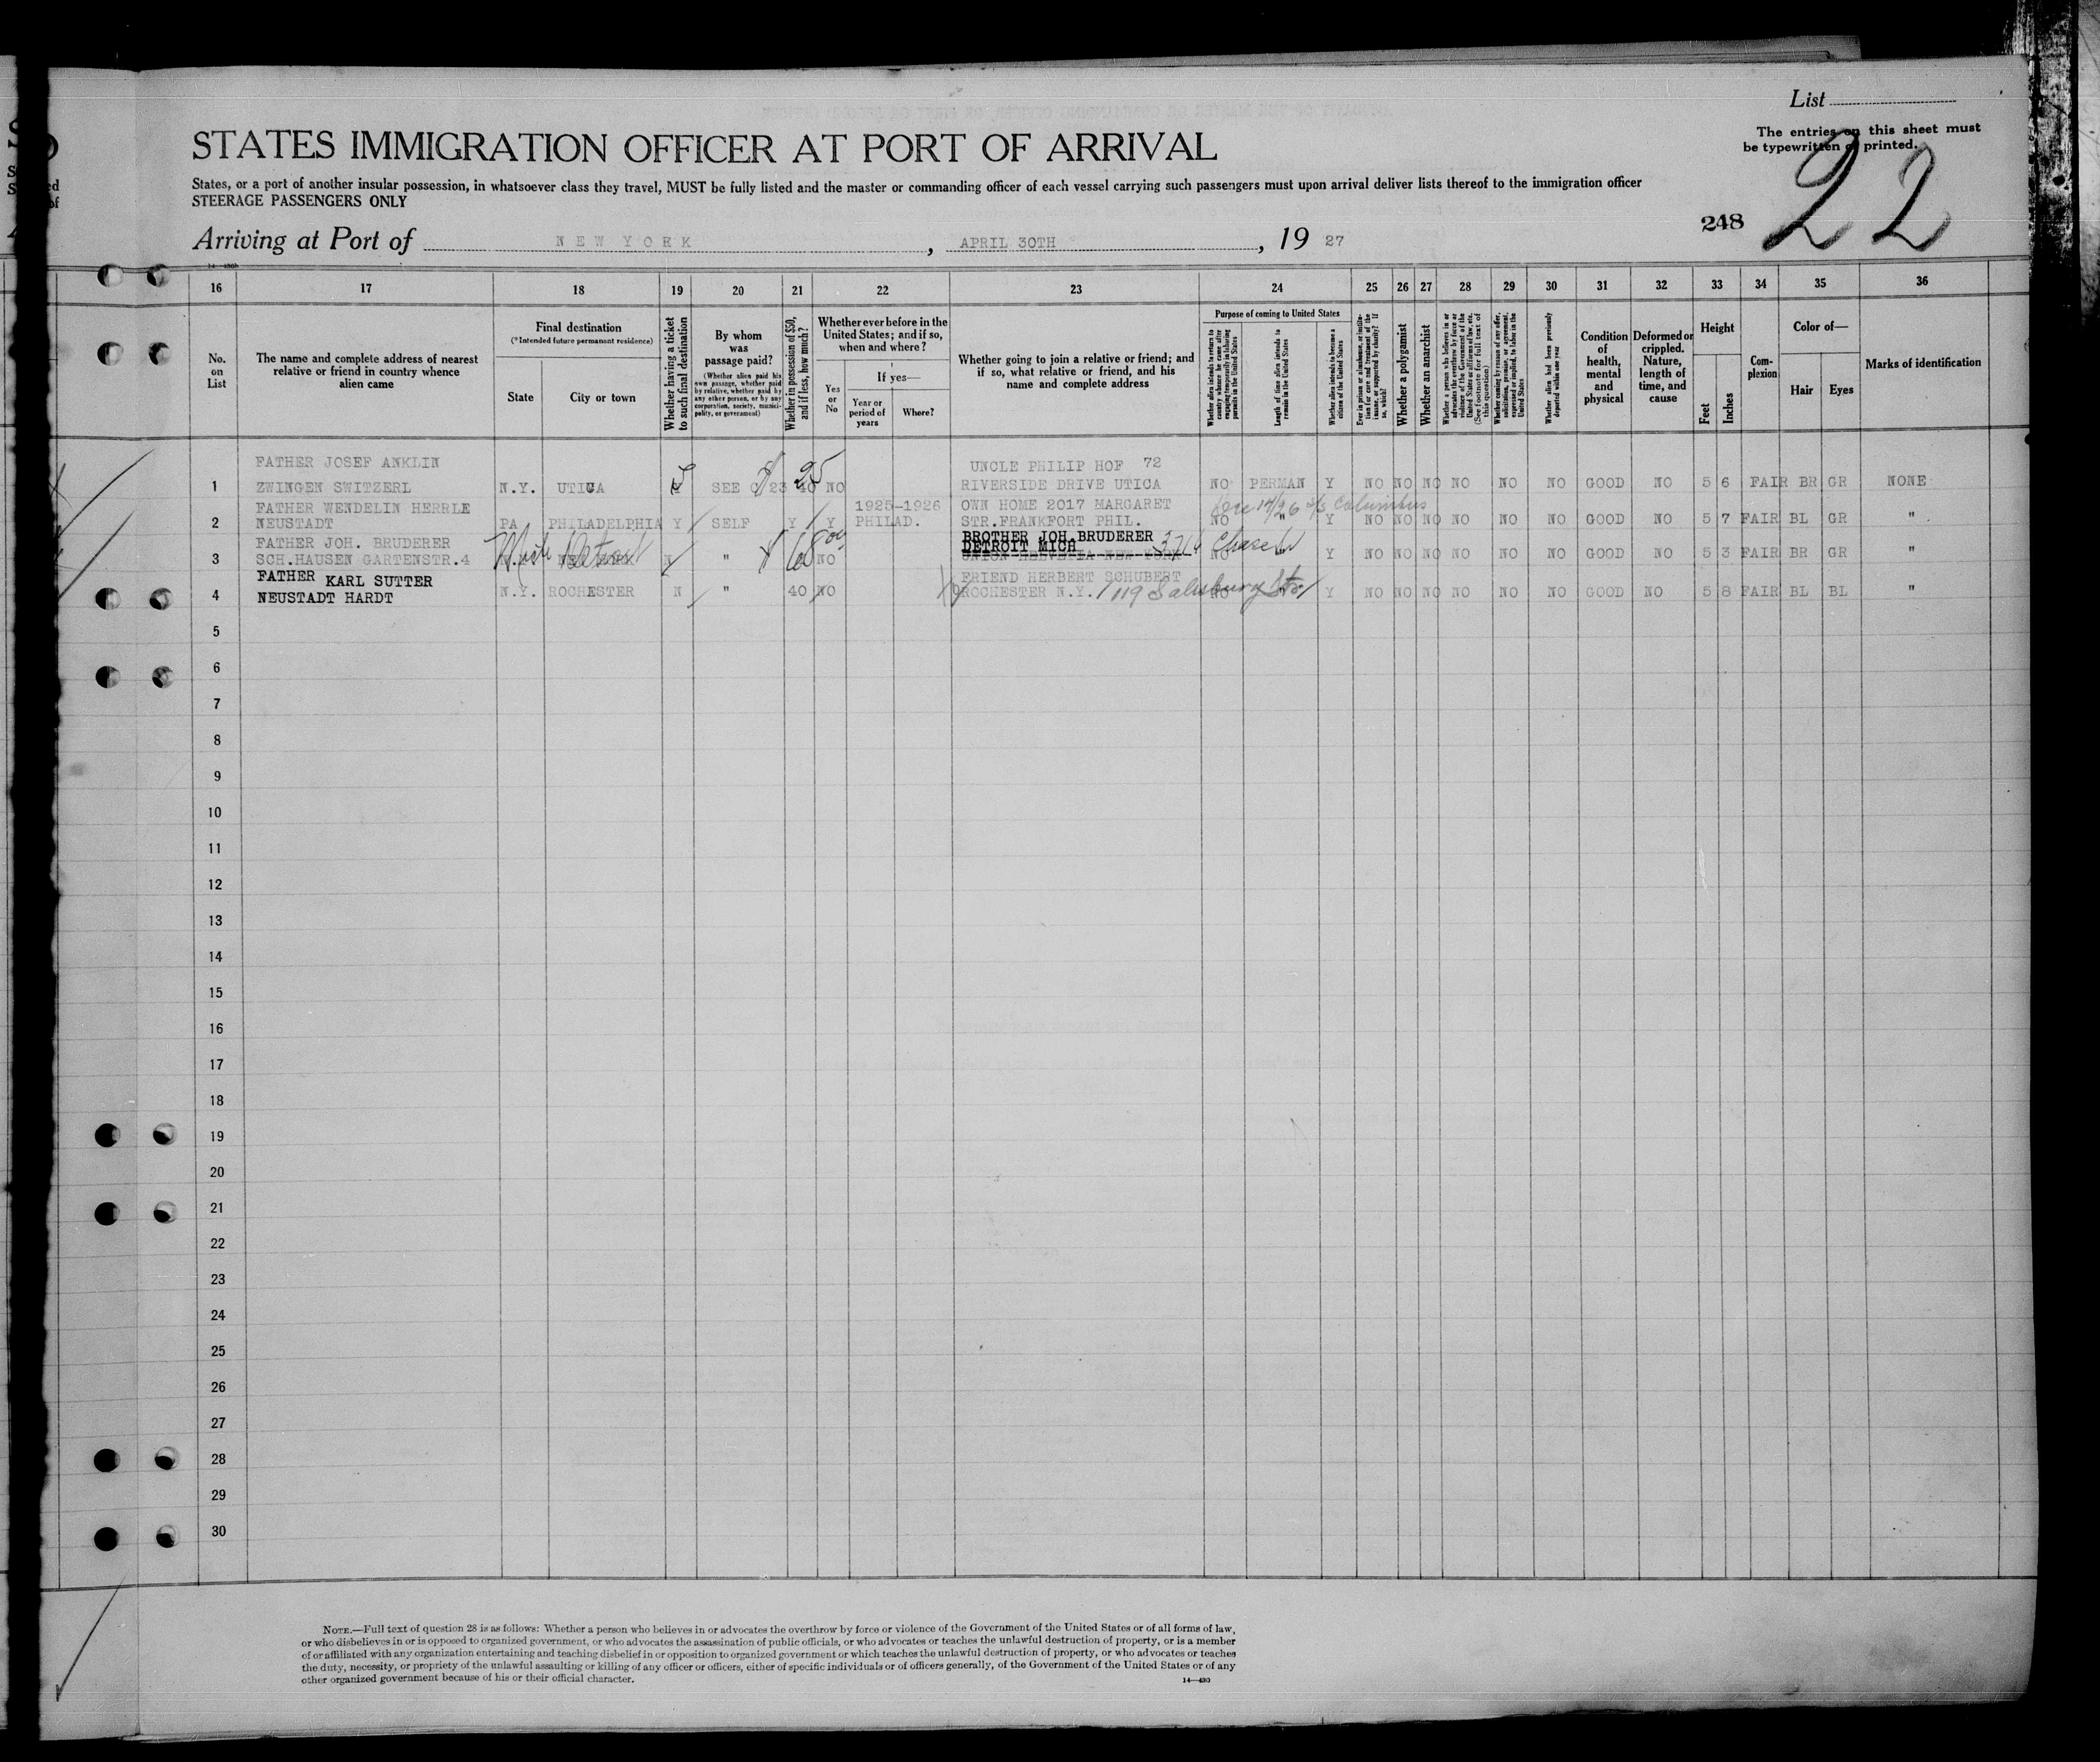 List
The entries on this sheet must
be typewritten or printed.
22
248
STATES IMMIGRATION OFFICER AT PORT OF ARRIVAL
States, or a port of another insular possession, in whatsoever class they travel, MUST be fully listed and the master or commanding officer of each vessel carrying such passengers must upon arrival deliver lists thereof to the immigration officer
STEERAGE PASSENGERS ONLY
Arriving at Port of NEW YORK, APRIL 30TH, 19 27
16 17 18 19 20 21 22 23 24 25 26 27 28 29 30 31 32 33 34 35 36
No. on List
The name and complete address of nearest relative or friend in country whence alien came
Final destination
(*Intended future permanent residence)
State
City or town
Whether having a ticket to such final destination
By whom was passage paid?
(Whether alien paid his own passage, whether paid by relative, whether paid by any other person, or by any corporation, society, municipality, or government)
Whether in possession of $50, and if less, how much?
Whether ever before in the United States; and if so, when and where?
Yes or No
If yes—
Year or period of years
Where?
Whether going to join a relative or friend; and if so, what relative or friend, and his name and complete address
Purpose of coming to United States
Whether alien intends to return to country whence he came after engaging temporarily in laboring pursuits in the United States
Length of time alien intends to remain in the United States
Whether alien intends to become a citizen of the United States
Ever in prison or almshouse, or institution for care and treatment of the insane, or supported by charity? If so, which?
Whether a polygamist
Whether an anarchist
Whether a person who believes in or advocates the overthrow by force or violence of the Government of the United States or all forms of law, etc. (See footnote for full text of this question)
Whether coming by reason of any offer, solicitation, promise, or agreement, expressed or implied, to labor in the United States
Whether alien had been previously deported within one year
Condition of health, mental and physical
Deformed or crippled. Nature, length of time, and cause
Height
Feet
Inches
Complexion
Color of—
Hair
Eyes
Marks of identification
FATHER JOSEF ANKLIN UNCLE PHILIP HOF 72
1 ZWINGEN SWITZERL N.Y. UTICA SEE C 23 40 25 NO RIVERSIDE DRIVE UTICA NO PERMAN Y NO NO NO NO NO NO GOOD NO 5 6 FAIR BR GR NONE
FATHER WENDELIN HERRLE 1925-1926 OWN HOME 2017 MARGARET Dec 14/26 S/S Columbus
2 NEUSTADT PA PHILADELPHIA Y SELF Y Y PHILAD. STR.FRANKFORT PHIL. NO " Y NO NO NO NO NO NO GOOD NO 5 7 FAIR BL GR "
FATHER JOH. BRUDERER BROTHER JOH.BRUDERER
DETROIT MICH
3 SCH.HAUSEN GARTENSTR.4 Detroit N " NO UNION HELVETIA NEW YORK NO " Y NO NO NO NO NO NO GOOD NO 5 3 FAIR BR GR "
FATHER KARL SUTTER FRIEND HERBERT SCHUBERT
4 NEUSTADT HARDT N.Y. ROCHESTER N " 40 NO ROCHESTER N.Y. 119 Salisbury Str. NO Y NO NO NO NO NO NO GOOD NO 5 8 FAIR BL BL "
5
6
7
8
9
10
11
12
13
14
15
16
17
18
19
20
21
22
23
24
25
26
27
28
29
30
NOTE.—Full text of question 28 is as follows: Whether a person who believes in or advocates the overthrow by force or violence of the Government of the United States or of all forms of law,
or who disbelieves in or is opposed to organized government, or who advocates the assassination of public officials, or who advocates or teaches the unlawful destruction of property, or is a member
of or affiliated with any organization entertaining and teaching disbelief in or opposition to organized government or which teaches the unlawful destruction of property, or who advocates or teaches
the duty, necessity, or propriety of the unlawful assaulting or killing of any officer or officers, either of specific individuals or of officers generally, of the Government of the United States or of any
other organized government because of his or their official character.
14—430